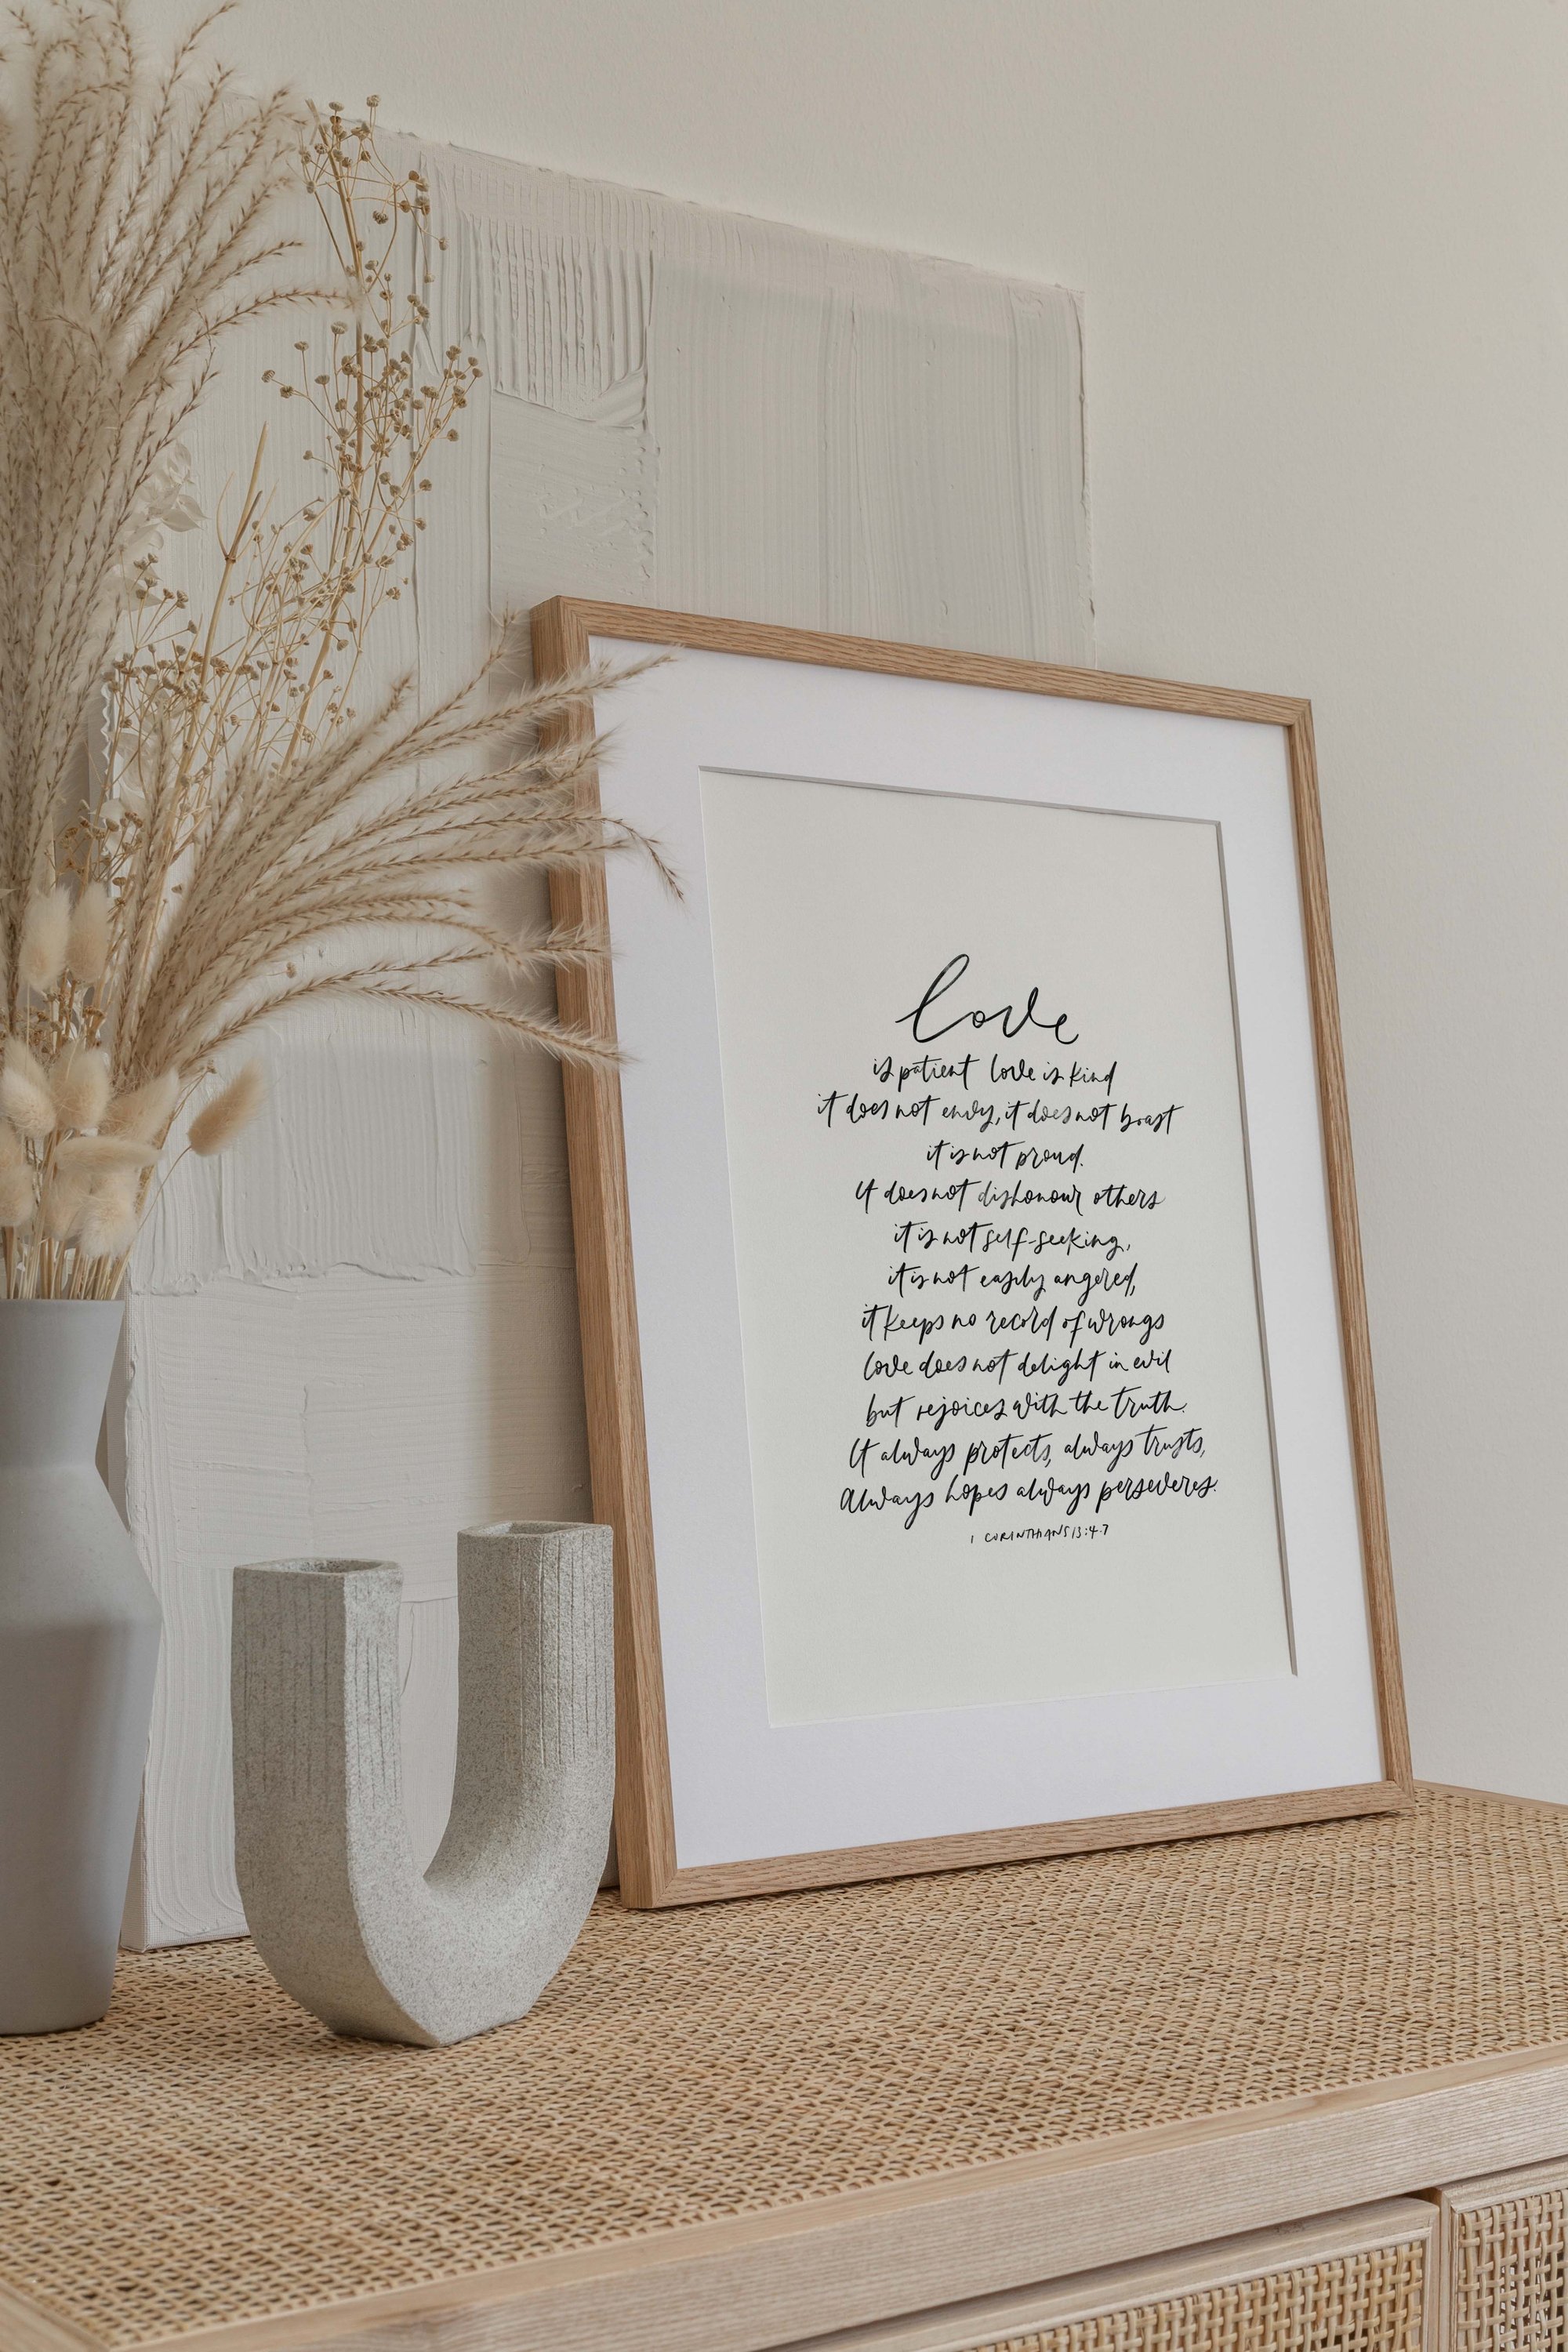 love
is patient love is kind
it does not envy, it does not boast
it is not proud.
It does not dishonour others
it is not self-seeking,
it is not easily angered,
it keeps no record of wrongs
love does not delight in evil
but rejoices with the truth.
It always protects, always trusts,
Always hopes always perseveres.
1 CORINTHIANS 13:4-7